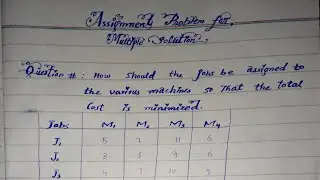 Assignment Problem for
Multiple Solution
Question #: How should the Jobs be assigned to
the various machines so that the total
Cost is minimized.
Jobs M1 M2 M3 M4
J1 5 7 11 6
J2 8 5 9 6
J3 4 7 10